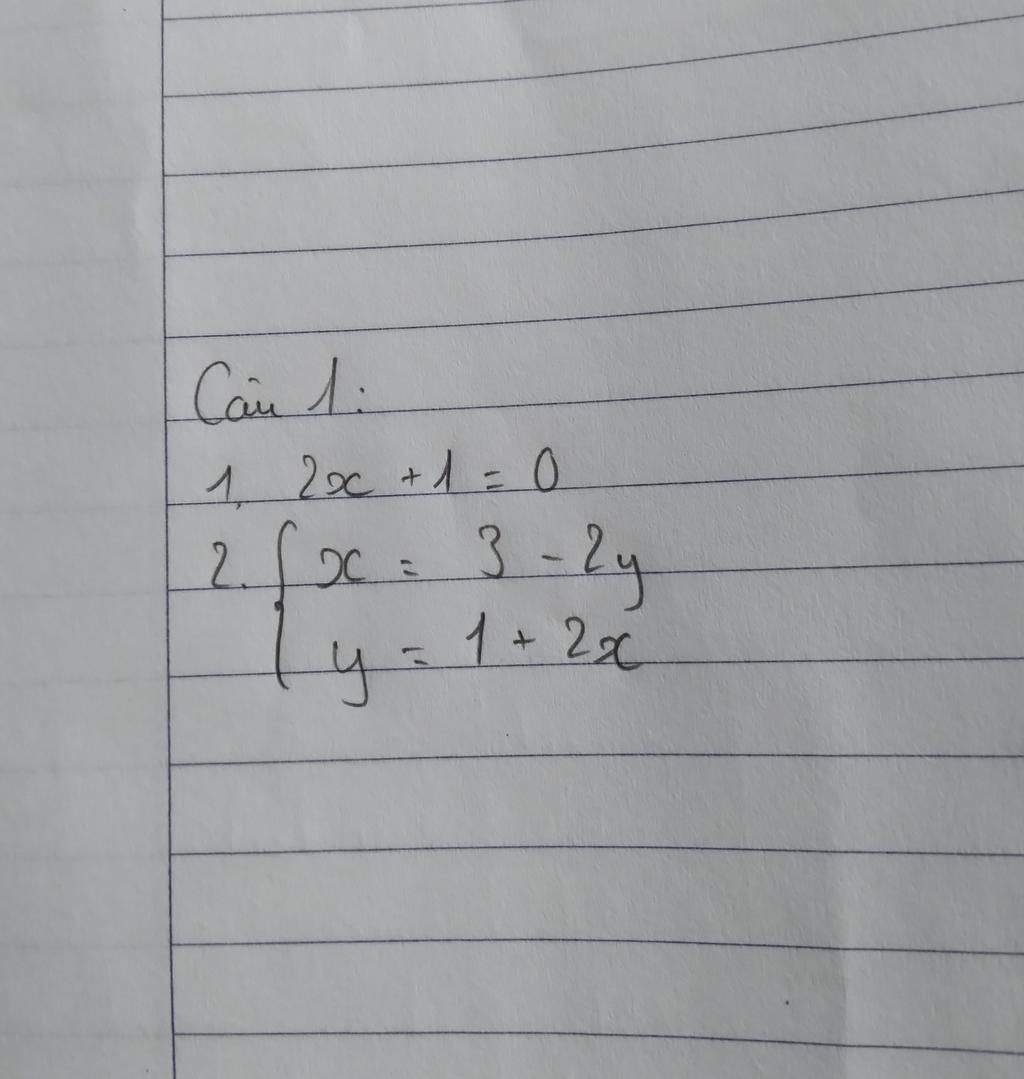 Câu 1:
1, 2x + 1 = 0
2. { x = 3 - 2y
y = 1 + 2x